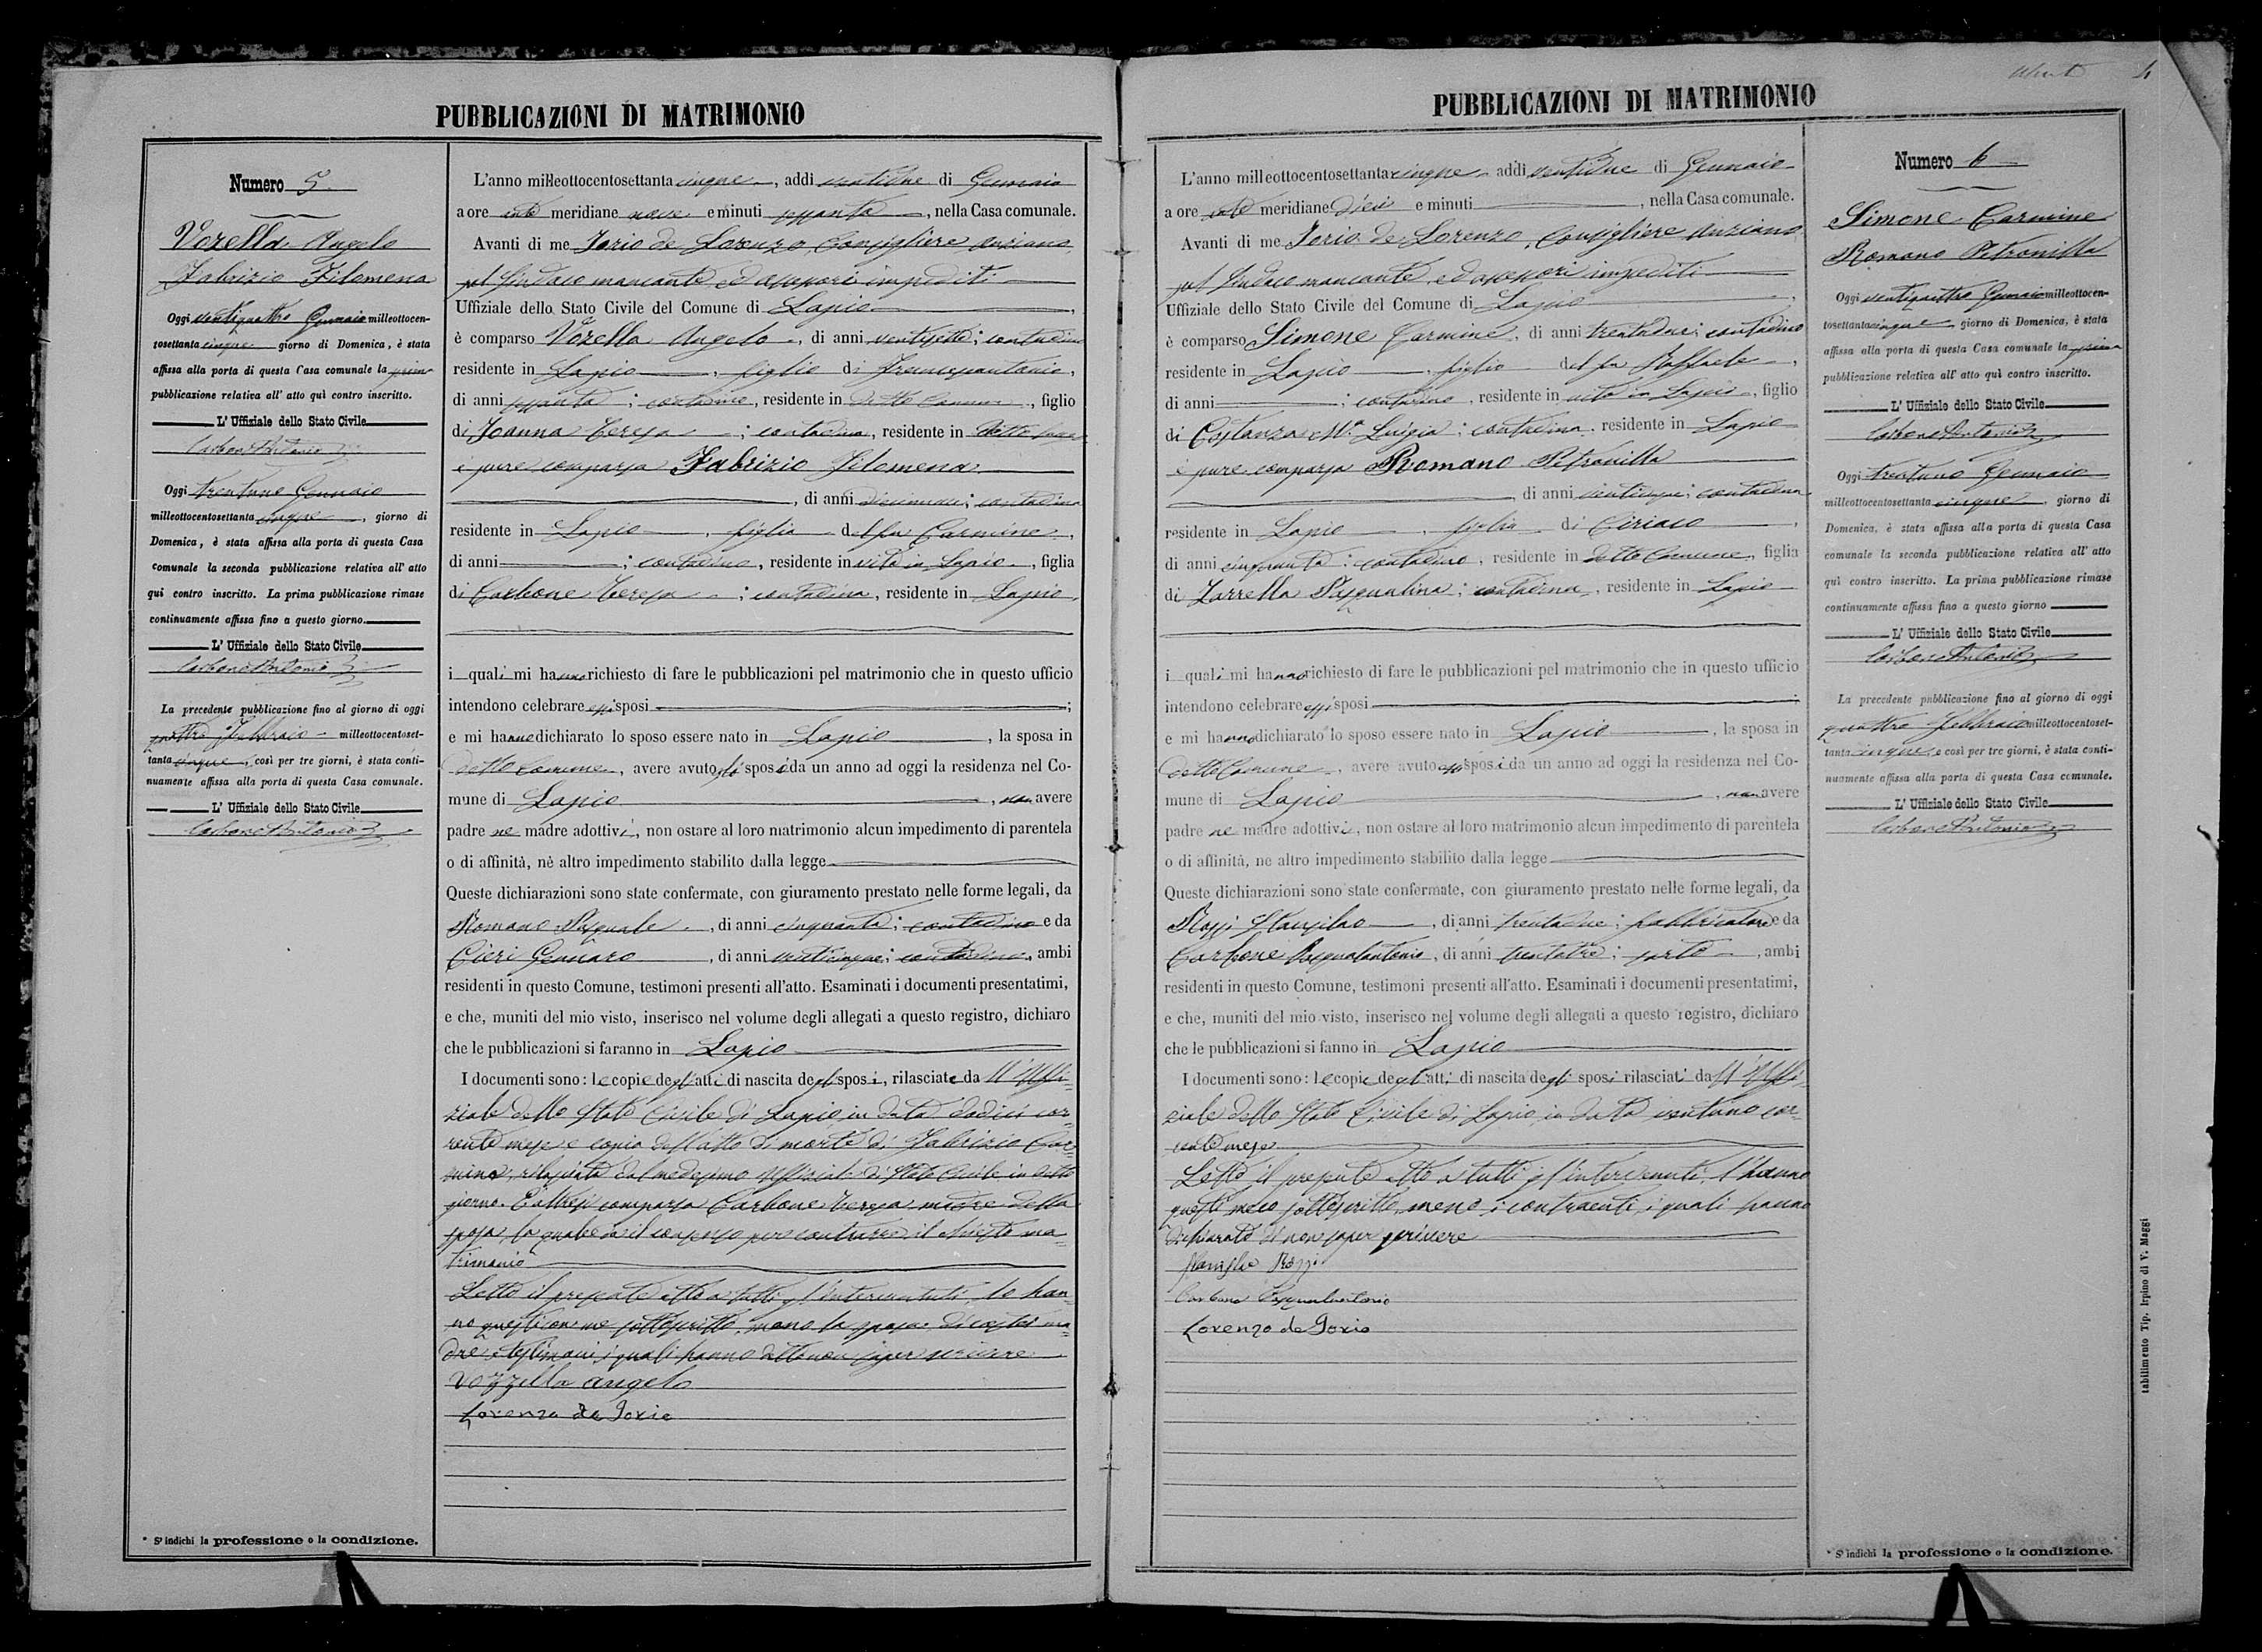 PUBBLICAZIONI DI MATRIMONIO
Numero 5
Vozella Angelo
Fabrizio Filomena
Oggi ventiquattro Gennaio milleottocen-
tosettanta cinque giorno di Domenica, è stata
affissa alla porta di questa Casa comunale la prima
pubblicazione relativa all' atto quì contro inscritto.
L' Uffiziale dello Stato Civile
Carbone Antonio
Oggi trentuno Gennaio
milleottocentosettanta cinque, giorno di
Domenica, è stata affissa alla porta di questa Casa
comunale la seconda pubblicazione relativa all' atto
qui contro inscritto. La prima pubblicazione rimase
continuamente affissa fino a questo giorno.
L' Uffiziale dello Stato Civile
Carbone Antonio
La precedente pubblicazione fino al giorno di oggi
quattro Febbraio milleottocentoset-
tanta cinque, così per tre giorni, è stata conti-
nuamente affissa alla porta di questa Casa comunale.
L' Uffiziale dello Stato Civile
Carbone Antonio
* S' indichi la professione o la condizione.
L'anno milleottocentosettanta cinque, addi ventidue di Gennaio
a ore ante meridiane nove e minuti , nella Casa comunale.
Avanti di me Iorio de Lorenzo, Consigliere Anziano
pel Sindaco mancante ed assessori impediti
Uffiziale dello Stato Civile del Comune di Lapio,
è comparso Vozella Angelo, di anni ventisette; contadino
residente in Lapio, figlio di Francescantonio,
di anni ; contadino, residente in detto Comune, figlio
di Ioanna Teresa; contadina, residente in detto
è pure comparsa Fabrizio Filomena
, di anni diciannove; contadina
residente in Lapio, figlia del fu Carmine,
di anni ; contadino, residente in vita in Lapio, figlia
di Carbone Teresa; contadina, residente in Lapio
i quali mi hanno richiesto di fare le pubblicazioni pel matrimonio che in questo ufficio
intendono celebrare essi sposi ;
e mi hanno dichiarato lo sposo essere nato in Lapio, la sposa in
detto Comune, avere avuto gli sposi da un anno ad oggi la residenza nel Co-
mune di Lapio, non avere
padre ne madre adottivi, non ostare al loro matrimonio alcun impedimento di parentela
o di affinità, nè altro impedimento stabilito dalla legge
Queste dichiarazioni sono state confermate, con giuramento prestato nelle forme legali, da
Romano Pasquale, di anni cinquanta; contadino e da
Cieri Gennaro, di anni venticinque; contadino, ambi
residenti in questo Comune, testimoni presenti all'atto. Esaminati i documenti presentatimi,
e che, muniti del mio visto, inserisco nel volume degli allegati a questo registro, dichiaro
che le pubblicazioni si faranno in Lapio
I documenti sono: le copie degli atti di nascita degli sposi, rilasciate da ll'Uffi-
ziale dello Stato Civile di Lapio in data dodici cor-
rente mese e copia dell'atto di morte di Fabrizio Car-
mine, rilasciata dal medesimo Uffiziale di Stato Civile in detto
giorno. E altresì comparsa Carbone Teresa madre della
sposa la quale dà il consenso per contrarre il chiesto ma-
trimonio
Letto il presente atto a tutti gl'intervenuti, lo han-
no questi con me sottoscritto, meno la sposa di costei ma-
dre e testimoni, i quali hanno detto non saper scrivere
Vozzella angelo
Lorenzo de Iorio
PUBBLICAZIONI DI MATRIMONIO
4
L'anno milleottocentosettanta cinque addi ventidue di Gennaio
a ore ante meridiane dieci e minuti , nella Casa comunale.
Avanti di me Iorio de Lorenzo, Consigliere Anziano
pel Sindaco mancante, ed assessori impediti
Uffiziale dello Stato Civile del Comune di Lapio,
è comparso Simone Carmine, di anni trentadue; contadino
residente in Lapio, figlio del fu Raffaele,
di anni ; contadino, residente in vita in Lapio, figlio
di Costanza Ma Luigia; contadina, residente in Lapio
è pure comparsa Romano Petronilla
, di anni ; contadina
residente in Lapio, figlia di Ciriaco,
di anni cinquanta; contadino, residente in detto Comune, figlia
di Zarrella Pasqualina; contadina, residente in Lapio
i quali mi hanno richiesto di fare le pubblicazioni pel matrimonio che in questo ufficio
intendono celebrare essi sposi ;
e mi hanno dichiarato lo sposo essere nato in Lapio, la sposa in
detto Comune, avere avuto essi sposi da un anno ad oggi la residenza nel Co-
mune di Lapio, non avere
padre ne madre adottivi, non ostare al loro matrimonio alcun impedimento di parentela
o di affinità, ne altro impedimento stabilito dalla legge
Queste dichiarazioni sono state confermate, con giuramento prestato nelle forme legali, da
Rossi Stanislao, di anni trentadue; fabbricatore e da
Carbone Pasqualantonio, di anni trentatre; sarto, ambi
residenti in questo Comune, testimoni presenti all'atto. Esaminati i documenti presentatimi,
e che, muniti del mio visto, inserisco nel volume degli allegati a questo registro, dichiaro
che le pubblicazioni si fanno in Lapio
I documenti sono: le copie degli atti di nascita degli sposi rilasciati da ll'Uffi-
ziale dello Stato Civile di Lapio in data ventuno cor-
rente mese
Letto il presente atto a tutti gl'intervenuti, l'hanno
questi meco sottoscritto, meno i contraenti, i quali hanno
dichiarato di non saper scrivere
Stanislao Rossi
Carbone Pasqualantonio
Lorenzo de Iorio
Numero 6
Simone Carmine
Romano Petronilla
Oggi ventiquattro Gennaio milleottocen-
tosettanta cinque giorno di Domenica, è stata
affissa alla porta di questa Casa comunale la prima
pubblicazione relativa all' atto quì contro inscritto.
L' Uffiziale dello Stato Civile
Carbone Antonio
Oggi trentuno Gennaio
milleottocentosettanta cinque, giorno di
Domenica, è stata affissa alla porta di questa Casa
comunale la seconda pubblicazione relativa all' atto
quì contro inscritto. La prima pubblicazione rimase
continuamente affissa fino a questo giorno
L' Uffiziale dello Stato Civile
Carbone Antonio
La precedente pubblicazione fino al giorno di oggi
quattro Febbraio milleottocentoset-
tanta cinque, e così per tre giorni, è stata conti-
nuamente affissa alla porta di questa Casa comunale.
L' Uffiziale dello Stato Civile
Carbone Antonio
* S' indichi la professione o la condizione.
tabilimento Tip. Irpino di V. Maggi